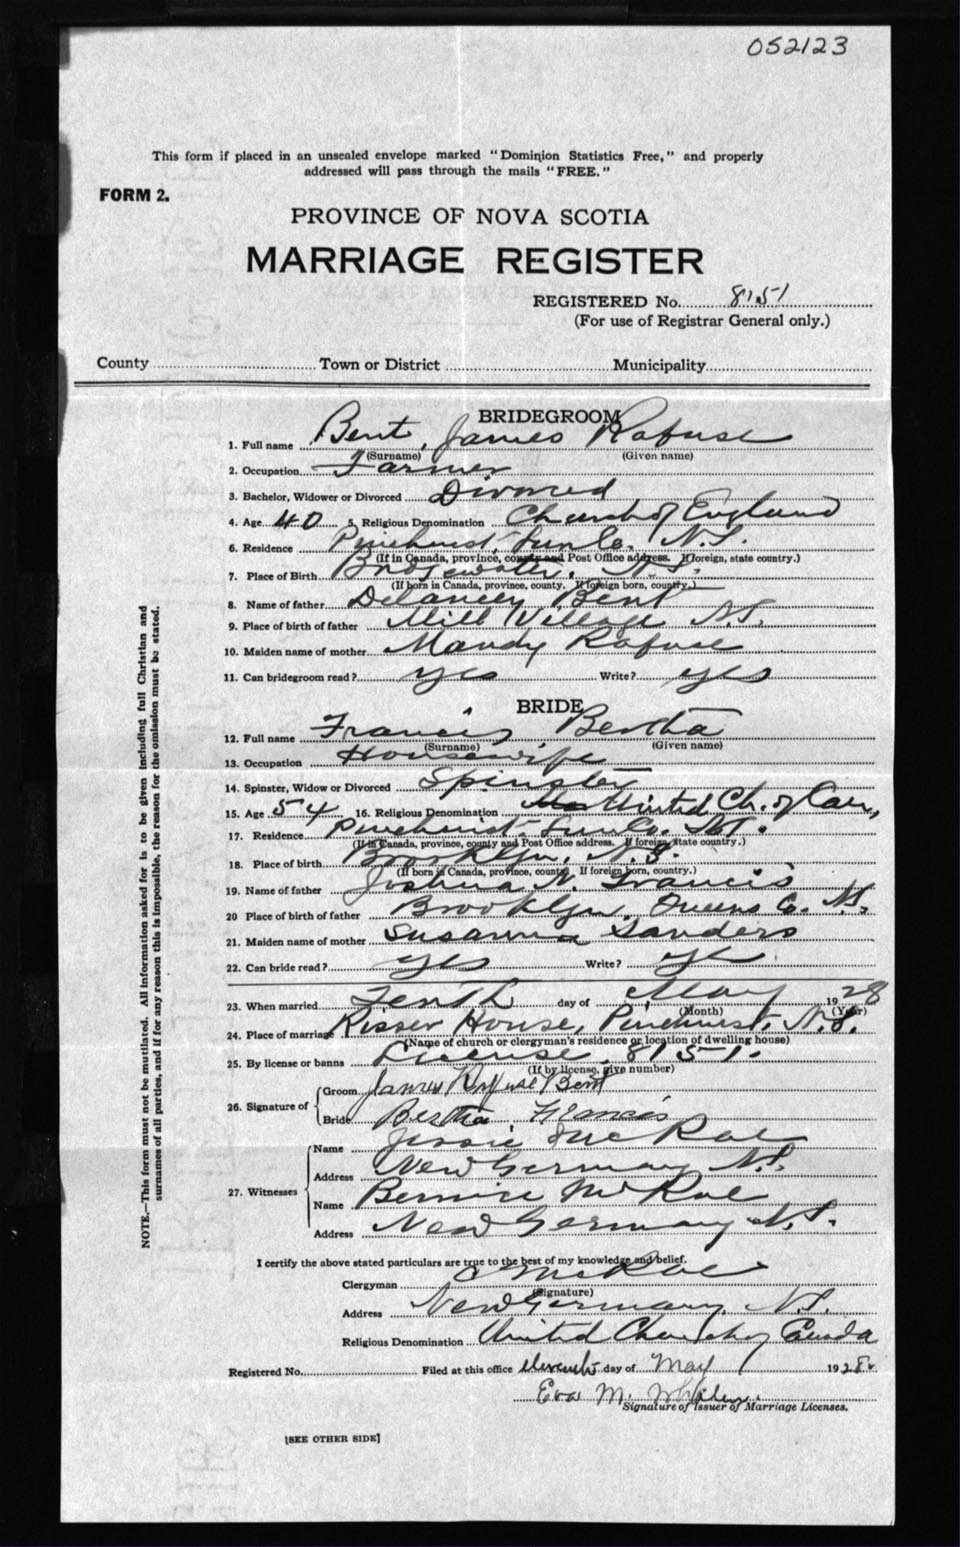 052123
This form if placed in an unsealed envelope marked "Dominion Statistics Free," and properly
addressed will pass through the mails "FREE."
FORM 2.
PROVINCE OF NOVA SCOTIA
MARRIAGE REGISTER
REGISTERED No. 8151
(For use of Registrar General only.)
County Town or District Municipality
BRIDEGROOM
1. Full name Bent, James Rafuse
(Surname) (Given name)
2. Occupation Farmer
3. Bachelor, Widower or Divorced Divorced
4. Age 40 5. Religious Denomination Church of England
6. Residence Pinehurst, Lun Co. N.S.
(If in Canada, province, county and Post Office address. If foreign, state country.)
7. Place of Birth Bridgewater, N.S.
(If born in Canada, province, county. If foreign born, country.)
8. Name of father Delancey Bent
9. Place of birth of father Mill Village N.S.
10. Maiden name of mother Mandy Rafuse
11. Can bridegroom read? yes Write? yes
BRIDE
12. Full name Francis Bertha
(Surname) (Given name)
13. Occupation Housewife
14. Spinster, Widow or Divorced Spinster
15. Age 54 16. Religious Denomination United Ch. of Can,
17. Residence Pinehurst Lun Co. N.S.
(If in Canada, province, county and Post Office address. If foreign, state country.)
18. Place of birth Brooklyn, N.S.
(If born in Canada, province, county. If foreign born, country.)
19. Name of father Joshua N. Francis
20 Place of birth of father Brooklyn, Queens Co. N.S.
21. Maiden name of mother Susanna Sanders
22. Can bride read? yes Write? yes
23. When married Tenth day of May 1928
(Month) (Year)
24. Place of marriage Risser House, Pinehurst, N.S.
(Name of church or clergyman's residence or location of dwelling house)
25. By license or banns License, 8151.
(If by license, give number)
26. Signature of Groom James Rafuse Bent
Bride Bertha Francis
27. Witnesses Name Jessie McRae
Address New Germany N.S.
Name Bernice McRae
Address New Germany N.S.
I certify the above stated particulars are true to the best of my knowledge and belief.
Clergyman McRae
(Signature)
Address New Germany, N.S.
Religious Denomination United Church of Canada
Registered No. Filed at this office eleventh day of May 1928
Eva M.
Signature of Issuer of Marriage Licenses.
[SEE OTHER SIDE]
NOTE.—This form must not be mutilated. All information asked for is to be given including full Christian and
surnames of all parties, and if for any reason this is impossible, the reason for the omission must be stated.